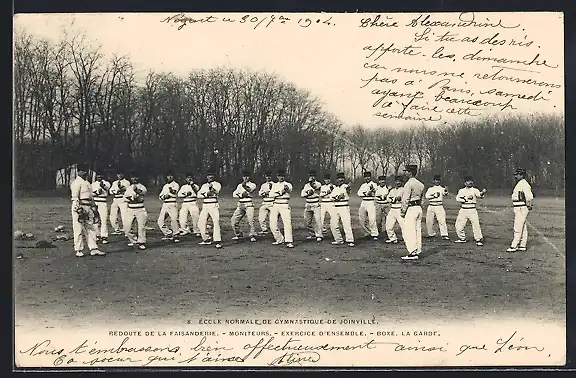 Nogent le 30/1 1904.
Chère Alexandrine
Si tu as des ris,
apporte-les, dimanche
car nous ne retournerons
pas à Paris, samedi
ayant beaucoup
à faire cette
semaine
8 ECOLE NORMALE DE GYMNASTIQUE DE JOINVILLE.
REDOUTE DE LA FAISANDERIE. - MONITEURS. - EXERCICE D'ENSEMBLE. - BOXE. LA GARDE.
Nous t'embrassons, bien affectueusement ainsi que Léon,
Ta sœur qui t'aime